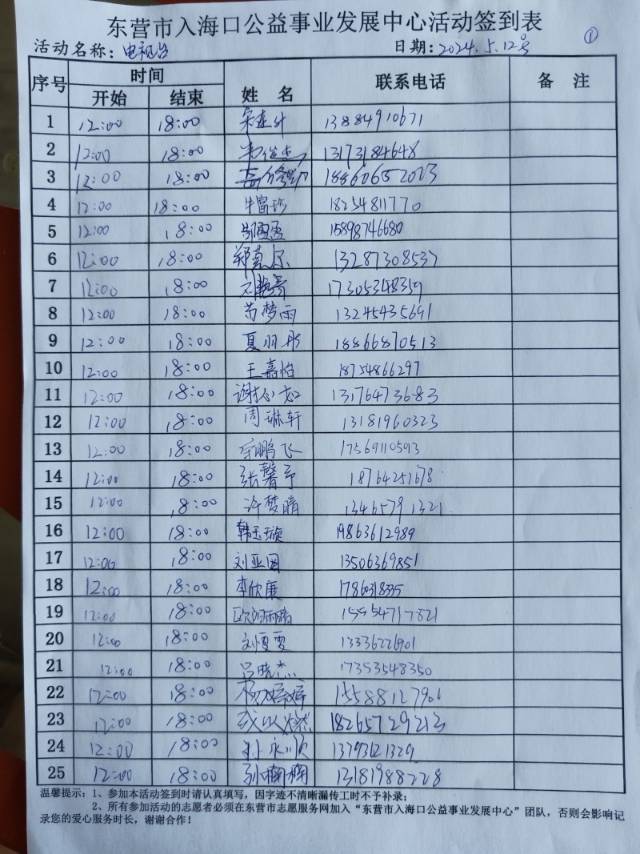 东营市入海口公益事业发展中心活动签到表
①
活动名称：电视台 日期：2024.5.12号
序号 时间 姓名 联系电话 备注
开始 结束
1 12:00 18:00 13884910671
2 12:00 18:00 13173184648
3 12:00 18:00 18860652023
4 12:00 18:00 18254811770
5 12:00 18:00 15898746680
6 12:00 18:00 13287308537
7 12:00 18:00 17305348359
8 12:00 18:00 苏梦雨 13245435691
9 12:00 18:00 夏羽彤 18866870513
10 12:00 18:00 王嘉怡 18754866297
11 12:00 18:00 13176473683
12 12:00 18:00 周琳轩 13181960323
13 12:00 18:00 17569110593
14 12:00 18:00 张馨予 18764251678
15 12:00 18:00 许梦晴 13465791321
16 12:00 18:00 韩玉璇 19863612989
17 12:00 18:00 刘亚国 13506369851
18 12:00 18:00 李欣康
19 12:00 18:00 15954717821
20 12:00 18:00 刘夏雯 13336226901
21 12:00 18:00 吕晓杰 17353548350
22 12:00 18:00 15588127906
23 12:00 18:00 18265729213
24 12:00 18:00 孙永顺 13793121329
25 12:00 18:00 孙楠楠 13181988228
温馨提示：1、参加本活动签到时请认真填写，因字迹不清晰漏传工时不予补录；
2、所有参加活动的志愿者必须在东营市志愿服务网加入“东营市入海口公益事业发展中心”团队，否则会影响记
录您的爱心服务时长，谢谢合作！